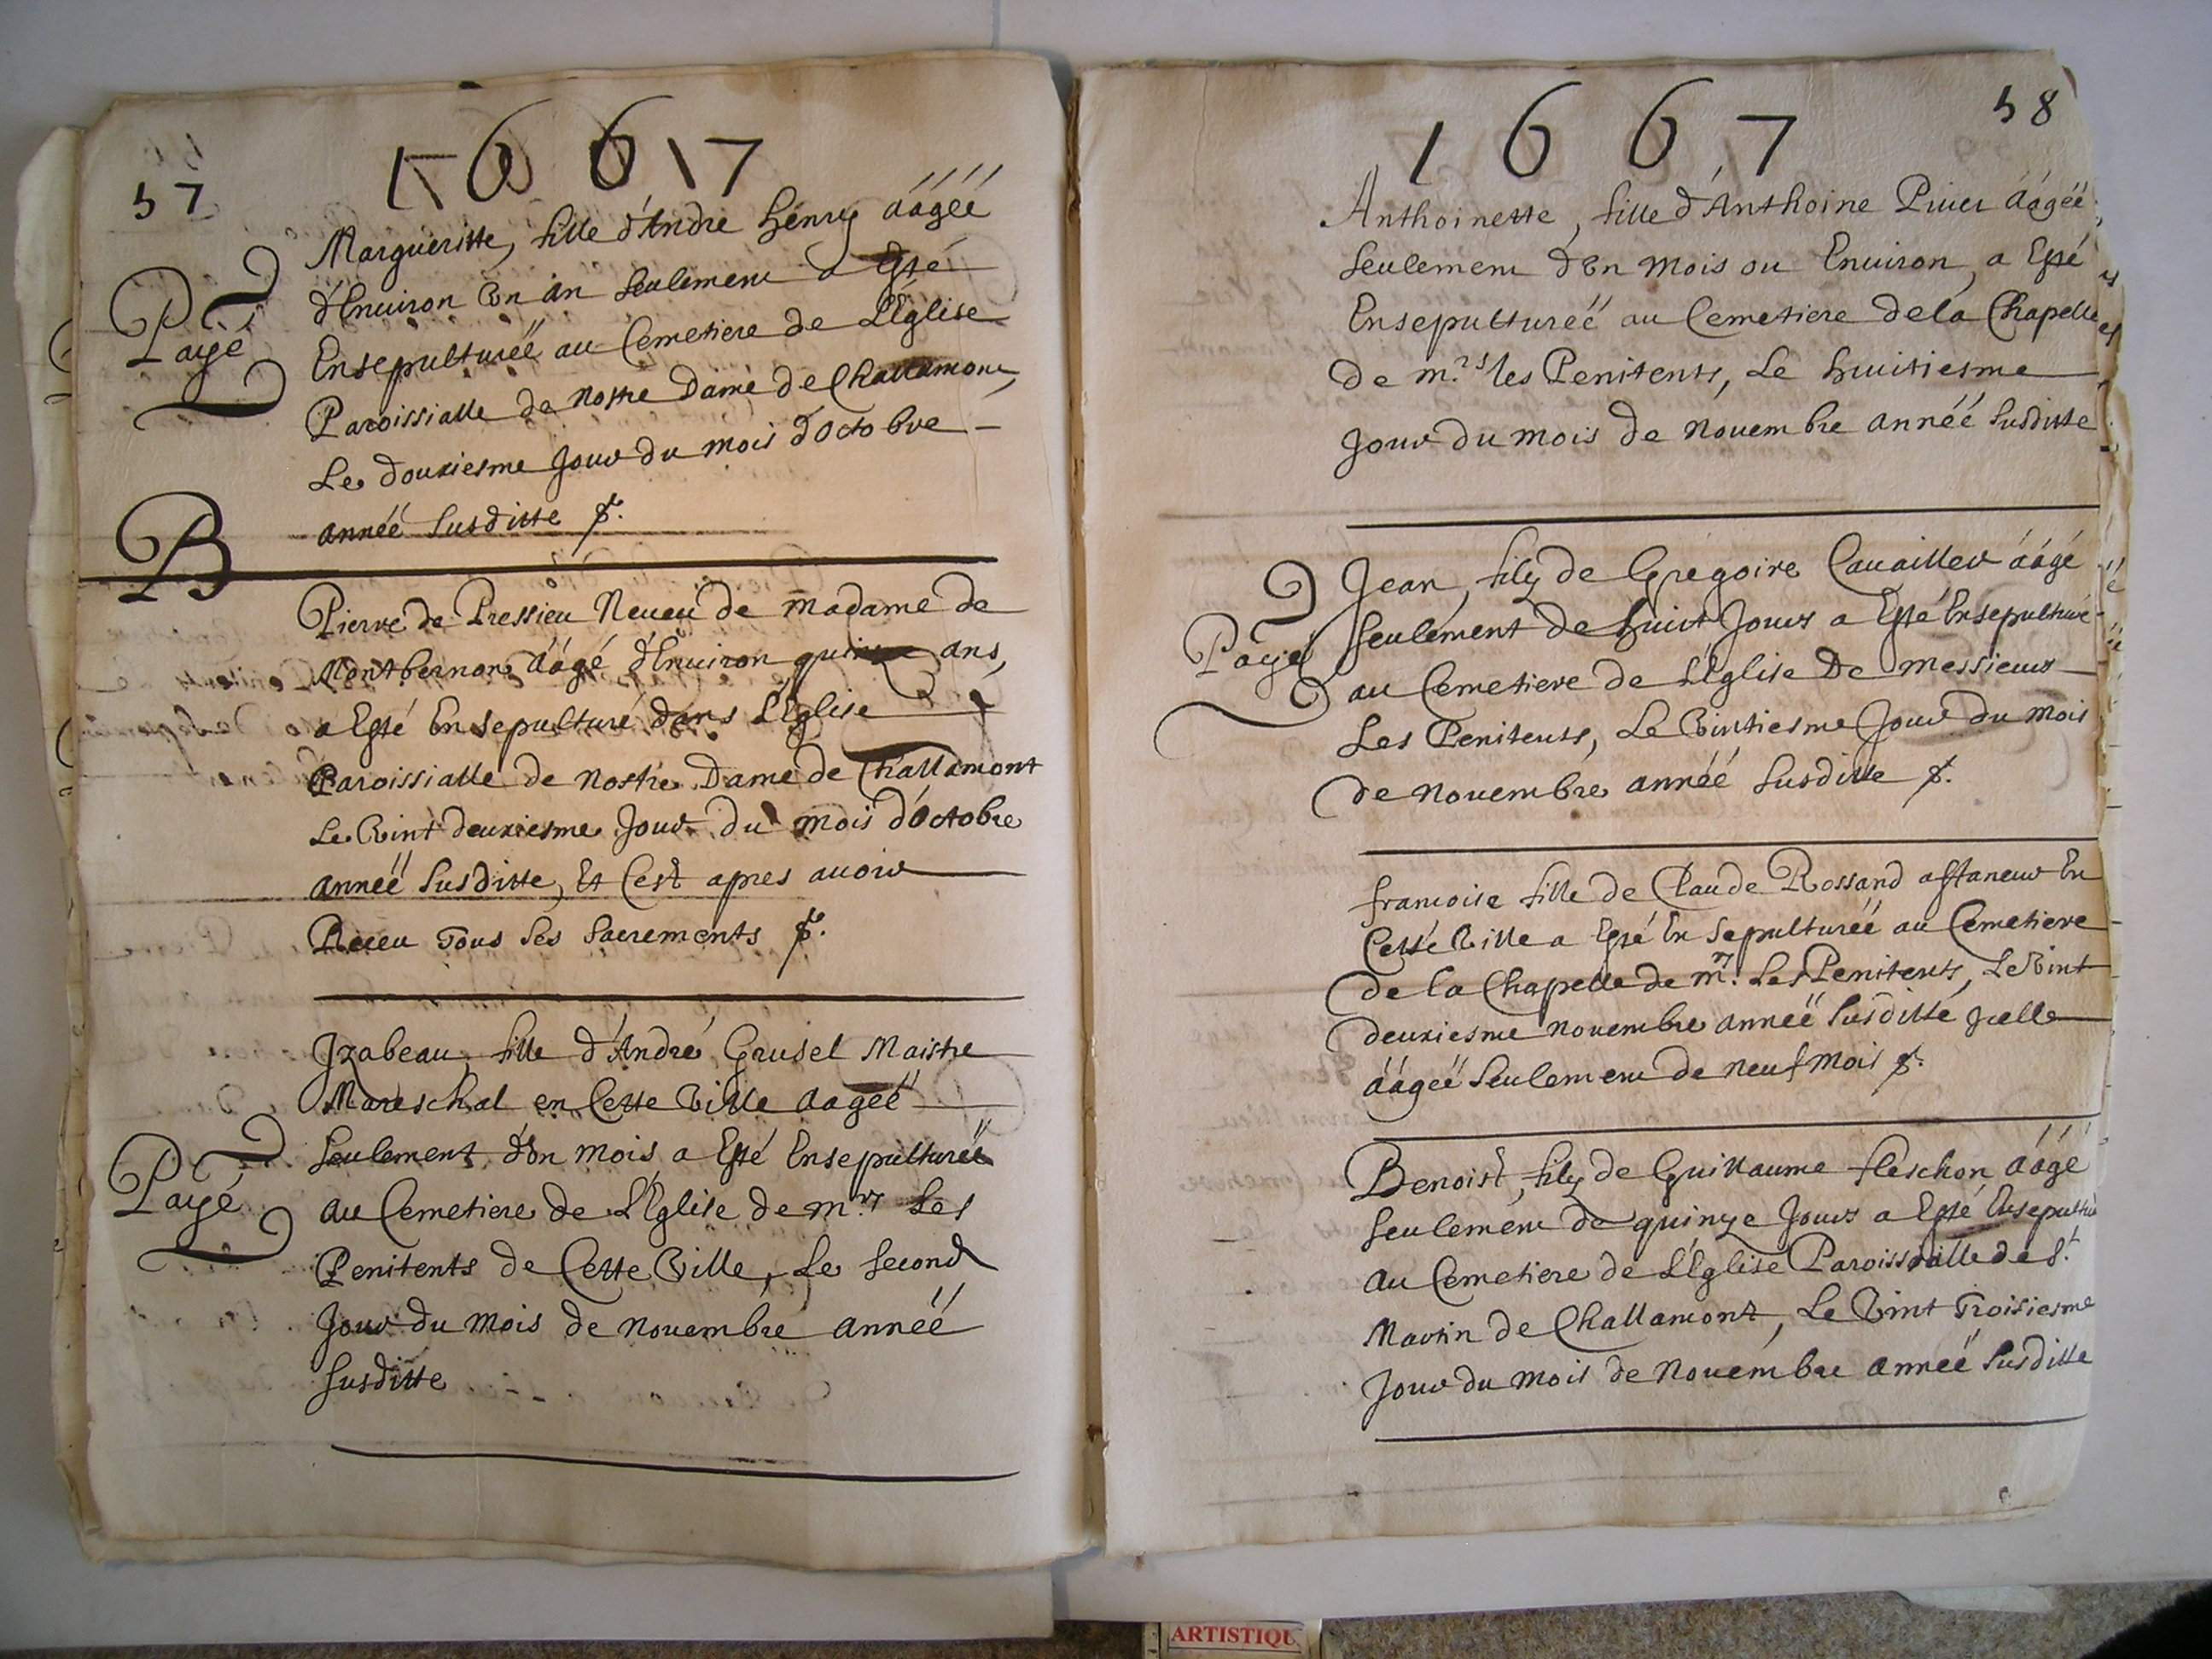 1667
57
Margueritte, fille d'André henry äágéé
d'Enuiron Vn än seulement a Esté
Ensepulturéé au Cemetiere de L'Église
Payé
Paroissialle de nostre Dame de Challamont,
Le douxiesme Jour du mois d'Octobre
année susditte
B
Pierre de Pressieu Neueu de madame de
Montbernon äágé d'Enuiron quinze ans,
a Esté Ensepulturé dans L'Eglise
Paroissialle de nostre Dame de Challamont
Le Vint deuxiesme Jour du mois d'Octobre
année susditte, Et C'est apres auoir
Receu Tous ses Sacrements
Izabeau, fille d'André Grusel Maistre
Mareschal en Cette Ville aagéé
Seulement d'Vn mois a Esté Ensepulturéé
Payé
au Cemetiere de L'Église de m.rs Les
Penitents de Cette Ville, Le second
Jour du mois de nouembre annéé
susditte
1667
58
Anthoinette, fille d'Anthoine Piuier äágéé
seulement d'Vn mois ou Enuiron, a Esté
Ensepulturéé au Cemetiere de la Chapelle
de m.rs les Penitents, Le huitiesme
Jour du mois de nouembre annéé susditte
Jean, fils de Grégoire Cauailler äágé
Payé
seulement de huict Jours a Esté Ensepulturé
au Cemetiere de L'Église De messieurs
Les Penitents, Le Vintiesme Jour du mois
de nouembre annéé susditte
francoise fille de Claude Rossand affaneur En
Cette Ville a Esté Ensepulturéé au Cemetiere
de la Chapelle de m.rs Les Penitents, Le Vint
deuxiesme nouembre année susditte Jcelle
äágéé seulement de neuf mois
Benoist, fils de Guillaume fleschon äágé
seulement de quinze Jours a Esté Ensepulturé
au Cemetiere de L'Église Paroissialle de S.t
Martin de Challamont, Le Vint Troisiesme
Jour du mois de Nouembre année susditte
ARTISTIQU